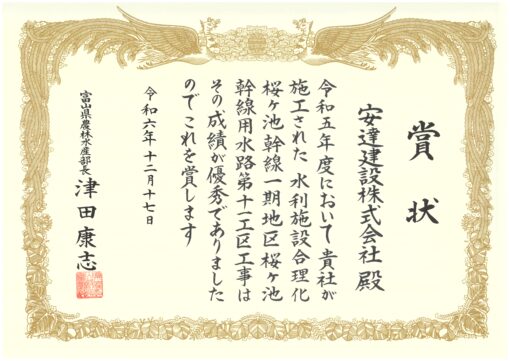 賞状
安達建設株式会社 殿
令和五年度において貴社が
施工された 水利施設合理化
桜ヶ池幹線一期地区桜ヶ池
幹線用水路第十一工区工事は
その成績が優秀でありました
のでこれを賞します
令和六年十二月十七日
富山県農林水産部長 津田康志